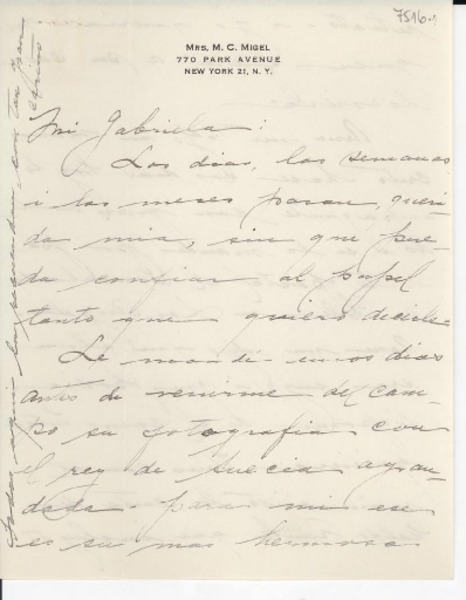 7516.1
MRS. M. C. MIGEL
770 PARK AVENUE
NEW YORK 21, N. Y.
Mi Gabriela:
Los dias, las semanas
i los meses pasan, queri-
da mia, sin que pue-
da confiar al papel
tanto que quiero decirle.
Le mandé unos dias
antes de venirme del cam-
po su fotografia con
el rey de Suecia agran-
dada - para mi ese
es su mas hermoso
Todos aqui la recuerdan con tan gran